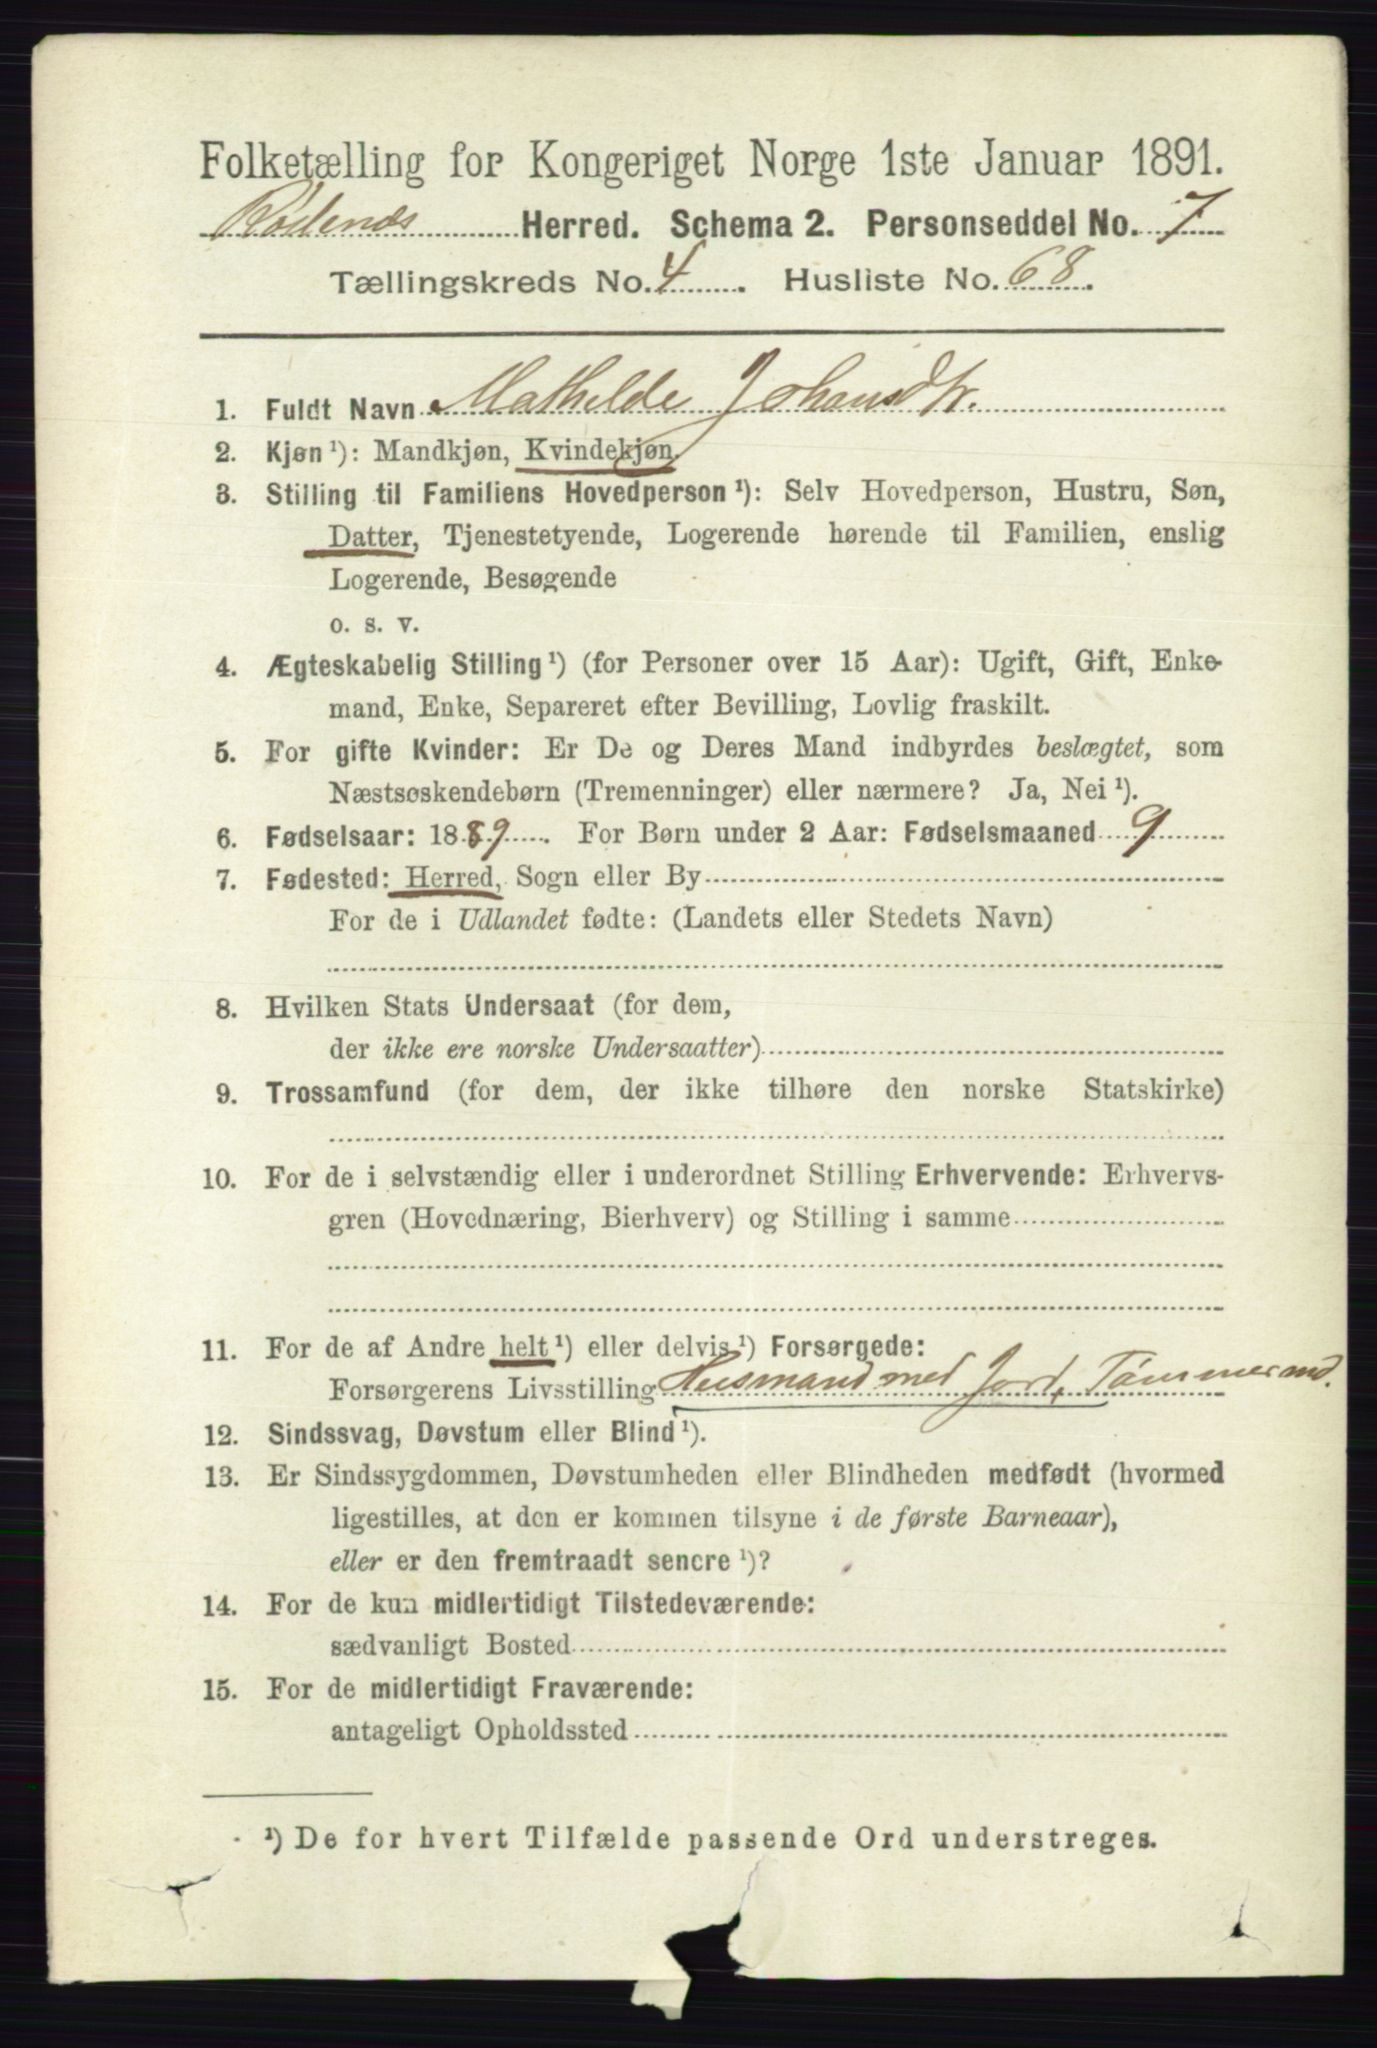 Folketælling for Kongeriget Norge 1ste Januar 1891.
Rødenes Herred. Schema 2. Personseddel No. 7
Tællingskreds No. 4. Husliste No. 68.
1. Fuldt Navn Mathilde Johansdtr.
2. Kjøn ¹): Mandkjøn, Kvindekjøn.
3. Stilling til Familiens Hovedperson ¹): Selv Hovedperson, Hustru, Søn,
Datter, Tjenestetyende, Logerende hørende til Familien, enslig
Logerende, Besøgende
o. s. v.
4. Ægteskabelig Stilling ¹) (for Personer over 15 Aar): Ugift, Gift, Enke-
mand, Enke, Separeret efter Bevilling, Lovlig fraskilt.
5. For gifte Kvinder: Er De og Deres Mand indbyrdes beslægtet, som
Næstsøskendebørn (Tremenninger) eller nærmere? Ja, Nei ¹).
6. Fødselsaar: 1889. For Børn under 2 Aar: Fødselsmaaned 9
7. Fødested: Herred, Sogn eller By
For de i Udlandet fødte: (Landets eller Stedets Navn)
8. Hvilken Stats Undersaat (for dem,
der ikke ere norske Undersaatter)
9. Trossamfund (for dem, der ikke tilhøre den norske Statskirke)
10. For de i selvstændig eller i underordnet Stilling Erhvervende: Erhvervs-
gren (Hovednæring, Bierhverv) og Stilling i samme
11. For de af Andre helt ¹) eller delvis ¹) Forsørgede:
Forsørgerens Livsstilling Husmand med Jord, Tømmermd.
12. Sindssvag, Døvstum eller Blind ¹).
13. Er Sindssygdommen, Døvstumheden eller Blindheden medfødt (hvormed
ligestilles, at den er kommen tilsyne i de første Barneaar),
eller er den fremtraadt senere ¹)?
14. For de kun midlertidigt Tilstedeværende:
sædvanligt Bosted
15. For de midlertidigt Fraværende:
antageligt Opholdssted
¹) De for hvert Tilfælde passende Ord understreges.